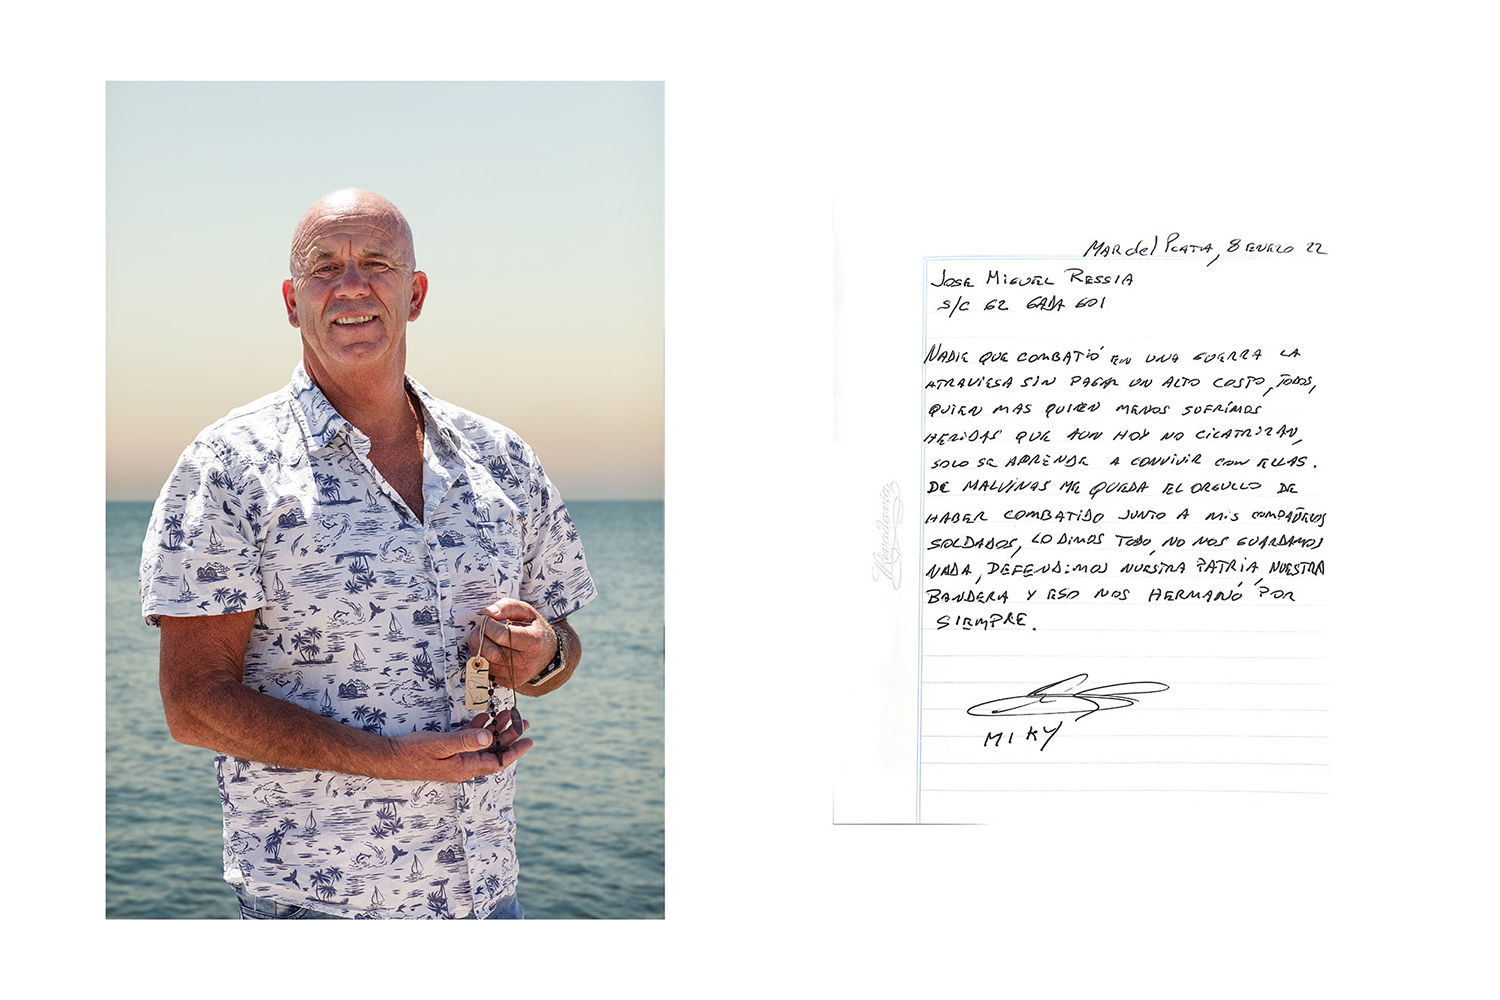 Mar del Plata, 8 enero 22
Jose Miguel Ressia
S/C 62 GADA 601
Nadie que combatió en una guerra la
atraviesa sin pagar un alto costo, todos,
quien mas quien menos sufrimos
heridas que aun hoy no cicatrizan,
solo se aprende a convivir con ellas.
De Malvinas me queda el orgullo de
haber combatido junto a mis compañeros
soldados, lo dimos todo, no nos guardamos
nada, defendimos nuestra patria nuestra
bandera y eso nos hermanó por
siempre.
MIKY
Rivadavia